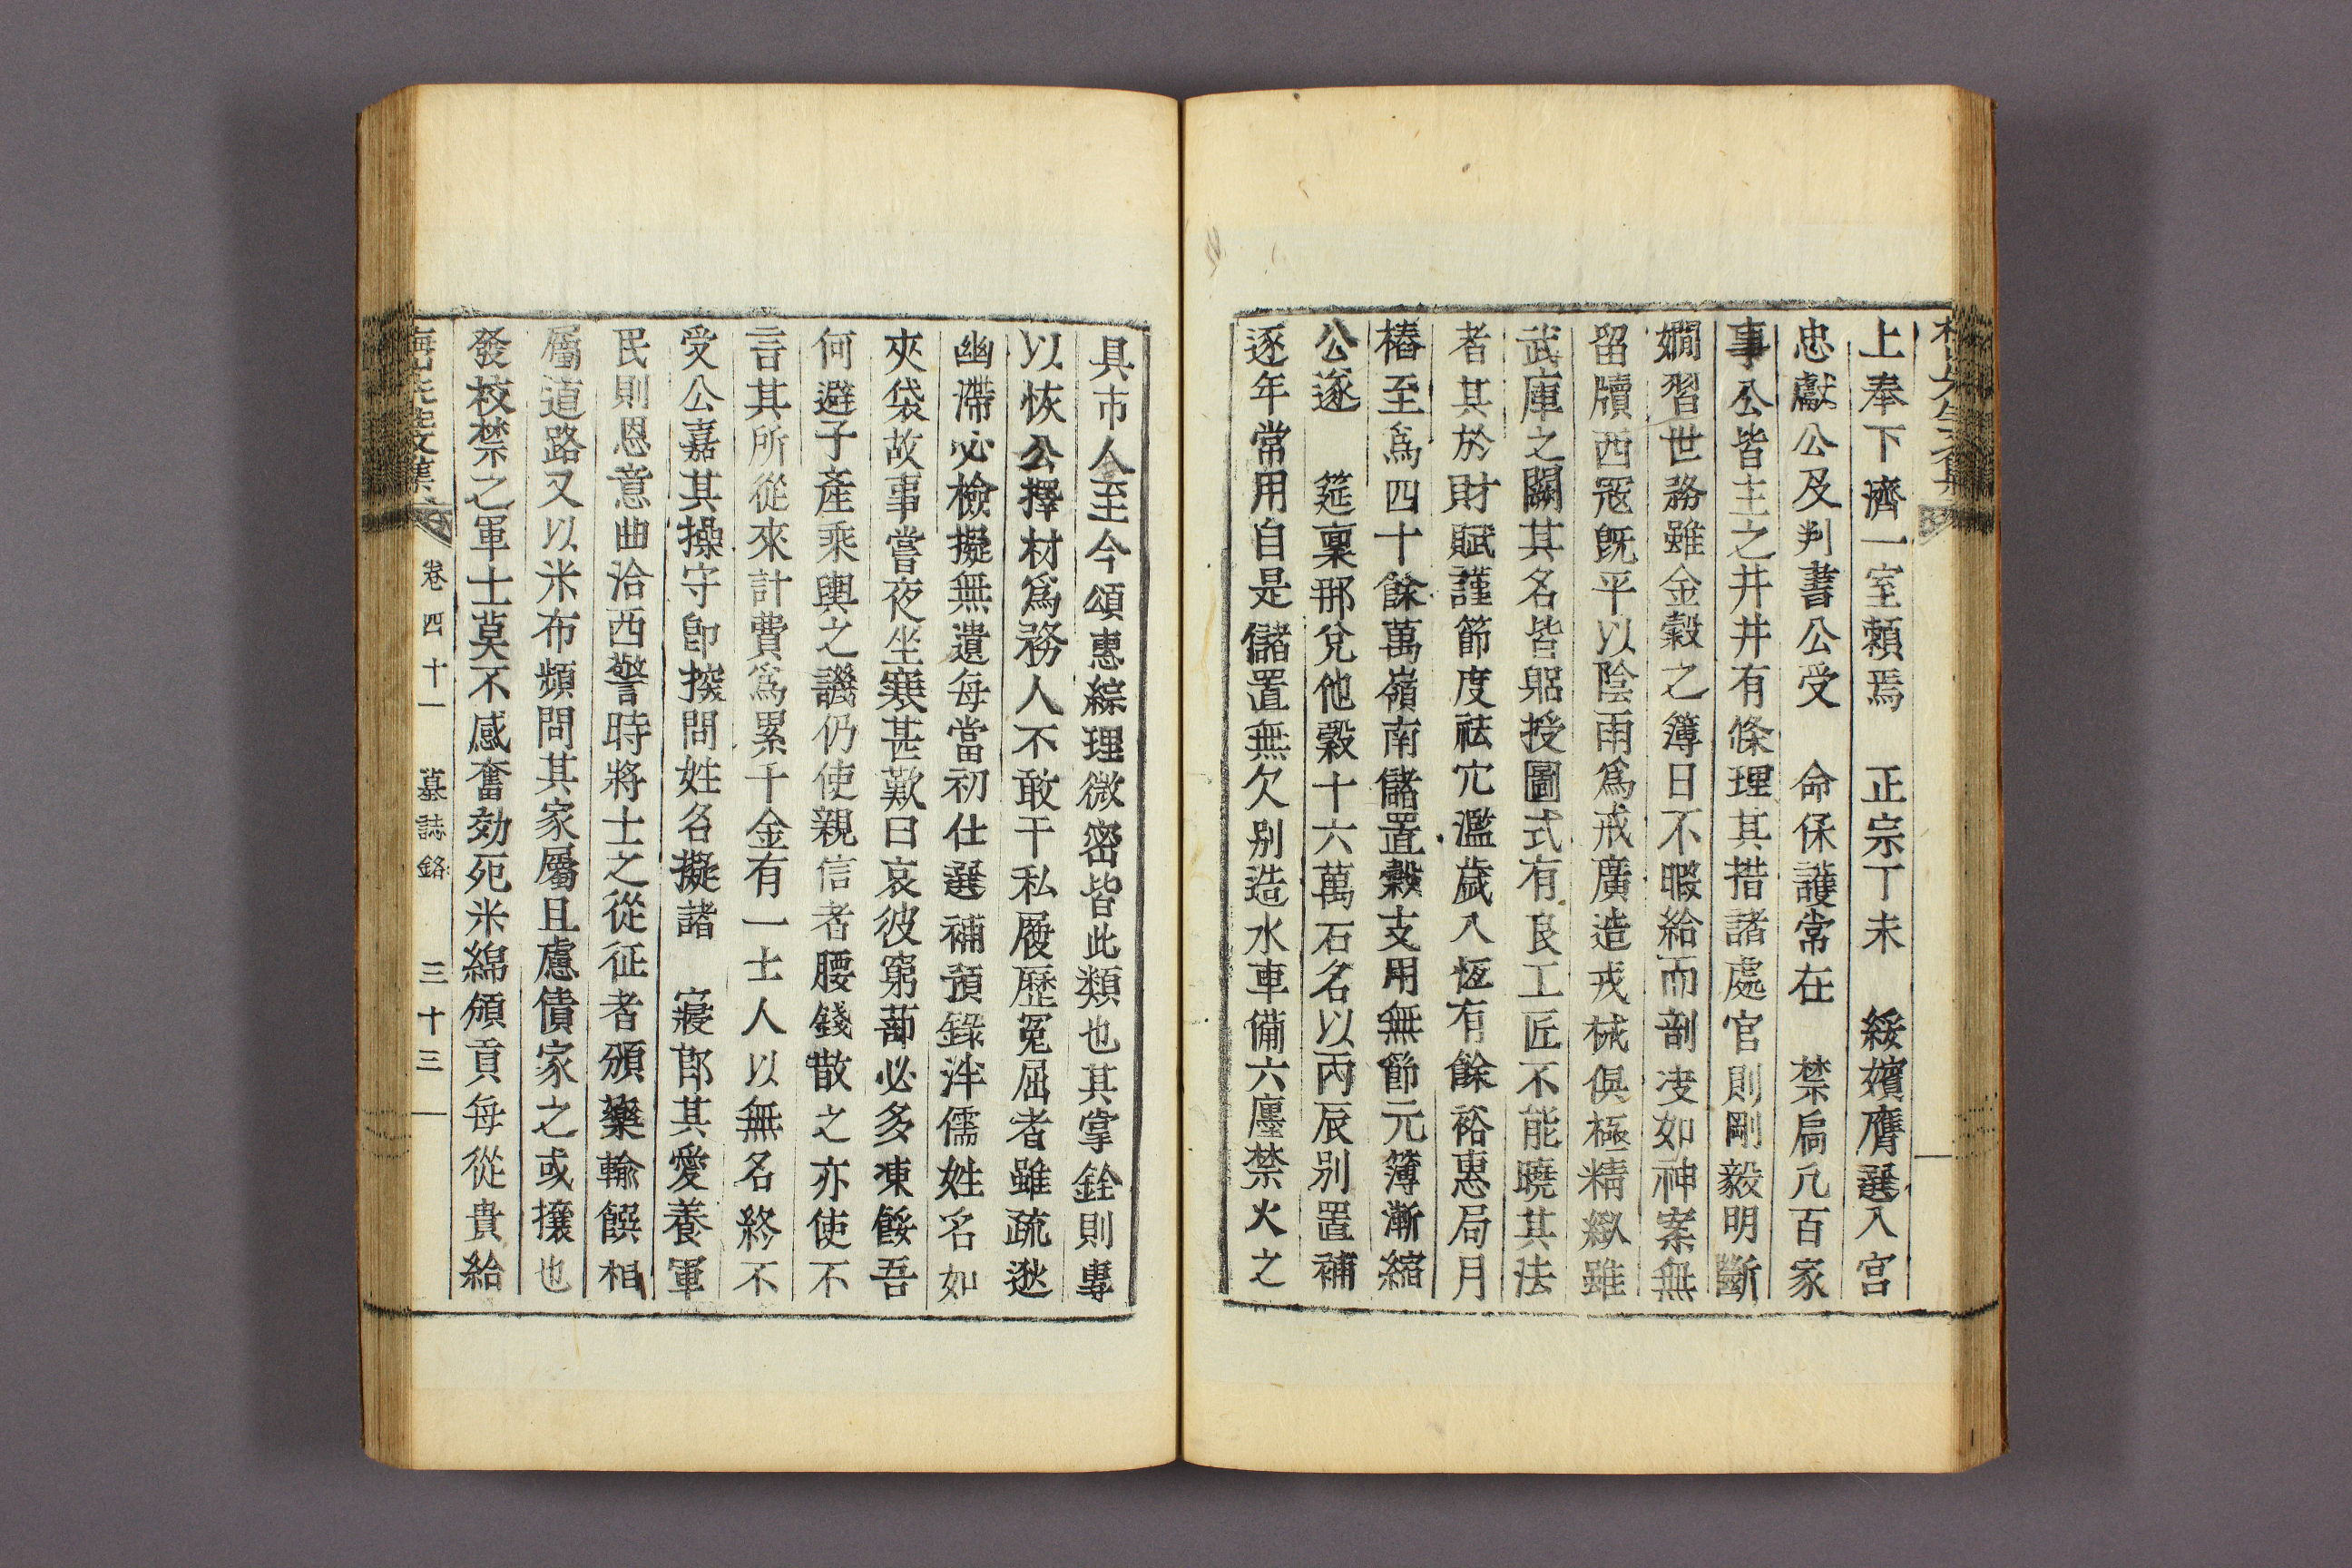 上奉下濟一室賴焉　正宗丁未　綏嬪膺選入宮
忠獻公及判書公受　命保護常在　禁扃凡百家
事公皆主之井井有條理其措諸處官則剛毅明斷
嫺習世務雖金穀之簿日不暇給而剖决如神案無
留牘西冦旣平以陰雨爲戒廣造戎械俱極精緻雖
武庫之關其名皆躬授圖式有良工匠不能曉其法
者其於財賦謹節度祛冗濫歲入恆有餘裕惠局月
樁至爲四十餘萬嶺南儲置糓支用無節元簿漸縮
公遂　筵稟那兌他穀十六萬石名以丙辰別置補
逐年常用自是儲置無欠別造水車備六廛禁火之
具市人至今頌惠綜理微密皆此類也其掌銓則專
以恢公擇材爲務人不敢干私屐歷寃屈者雖疏逖
幽滯必檢擬無遺每當初仕選補預錄泮儒姓名如
夾袋故事嘗夜坐寒甚歎曰哀彼窮蔀必多凍餒吾
何避子產乘輿之譏仍使親信者腰錢散之亦使不
言其所從來計費爲累千金有一士人以無名終不
受公嘉其操守卽搩問姓名擬諸　寢郞其愛養軍
民則恩意曲洽西警時將士之從征者頒藥輸饌相
屬道路又以米布頻問其家屬且慮債家之或攘也
發校禁之軍士莫不感奮効死米綿頒貢每從貴給
梅山先生文集　卷四十一　墓誌銘　三十三